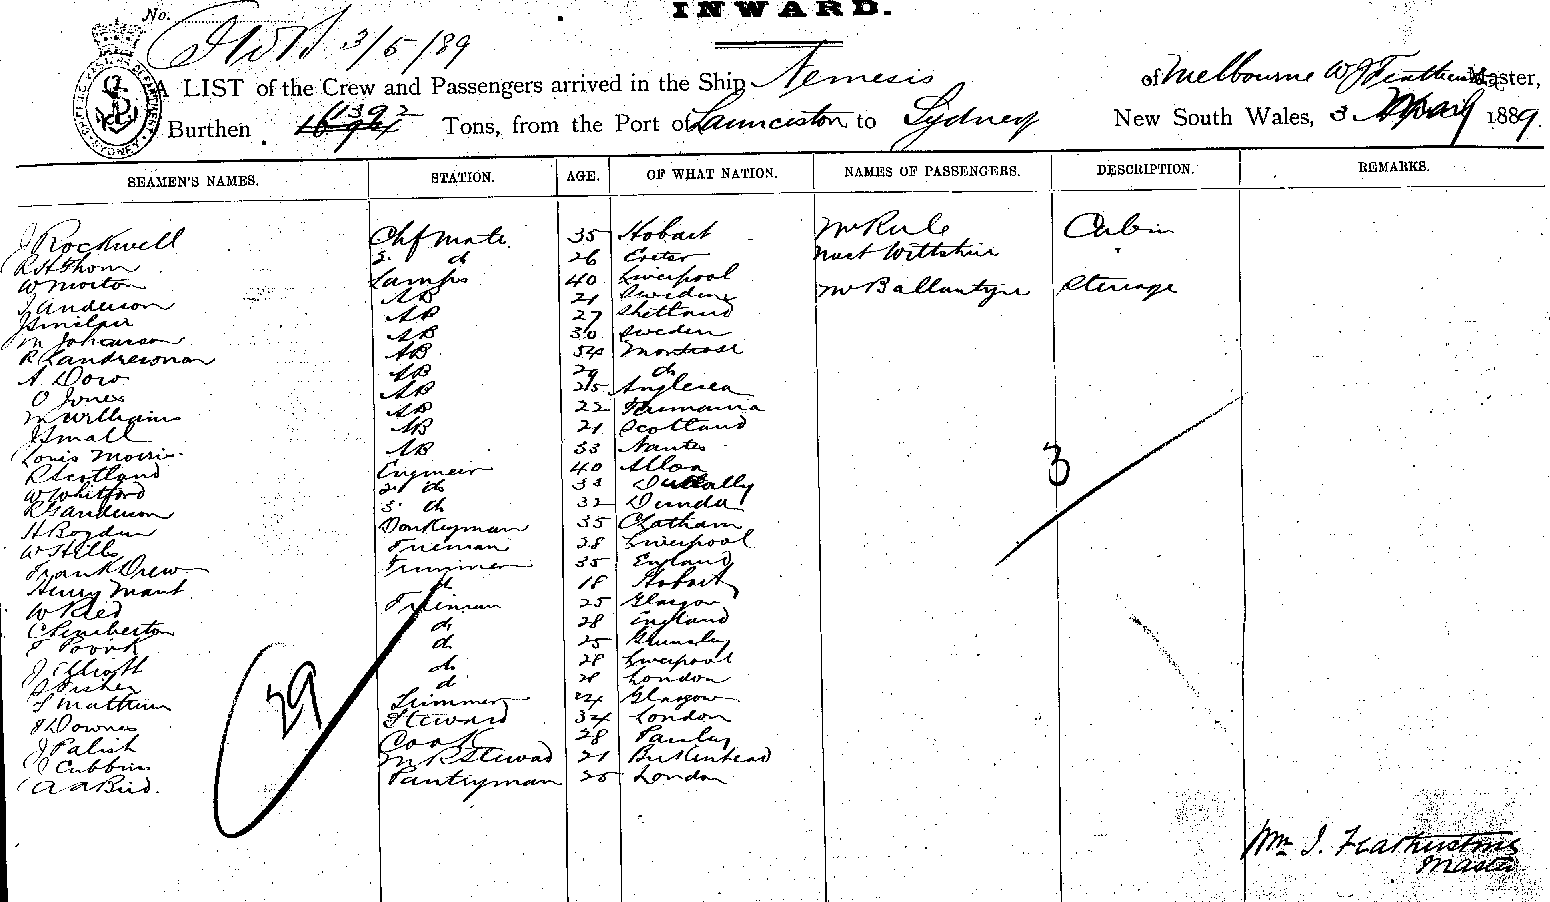 INWARD.
No.
3/5/89
LIST of the Crew and Passengers arrived in the Ship Nemesis of Melbourne W J Featherstone Master,
Burthen 1392 Tons, from the Port of Launceston to Sydney New South Wales, 3 May 1889.
SEAMEN'S NAMES. STATION. AGE. OF WHAT NATION. NAMES OF PASSENGERS. DESCRIPTION. REMARKS.
J Rockwell Chf Mate. 35 Hobart Mr Rule Cabin
R H Thom 2. d 26 Exeter Wiltshire "
W Morton Lamps 40 Liverpool Mr Ballantyne Steerage
J Anderson AB 21 Sweden
J Sinclair AB 27 Shetland
M Johanson AB 30 Sweden
R AB 54 Montrose
A. Dow AB 29 do
O Jones AB 25 Anglesea
M Williams AB 22 Tasmania
J Small AB 21 Scotland
Louis Morris AB 33 Nantes
R Scotland Engineer 40 Alloa
W Whitford 2. do
R Sanderson 3. do 32 Dundee
H Boyden Donkeyman 35 Chatham
W Hills Fireman 28 Liverpool
Frank Drew Trimmer 35 England
Henry Mant d 18 Hobart
W Reed Fireman 25 Glasgow
C Pemberton d 28 England
T Poork d 25 Grimsby
J Elliott d 28 Liverpool
Fisher d 28 London
Trimmer 24 Glasgow
Downes Steward 34 London
J Palish Cook 28 Paisley
J Cubbins M R Steward 21 Birkenhead
A A Bird. Pantryman 25 London
29
3
Wm J. Featherstone
Master